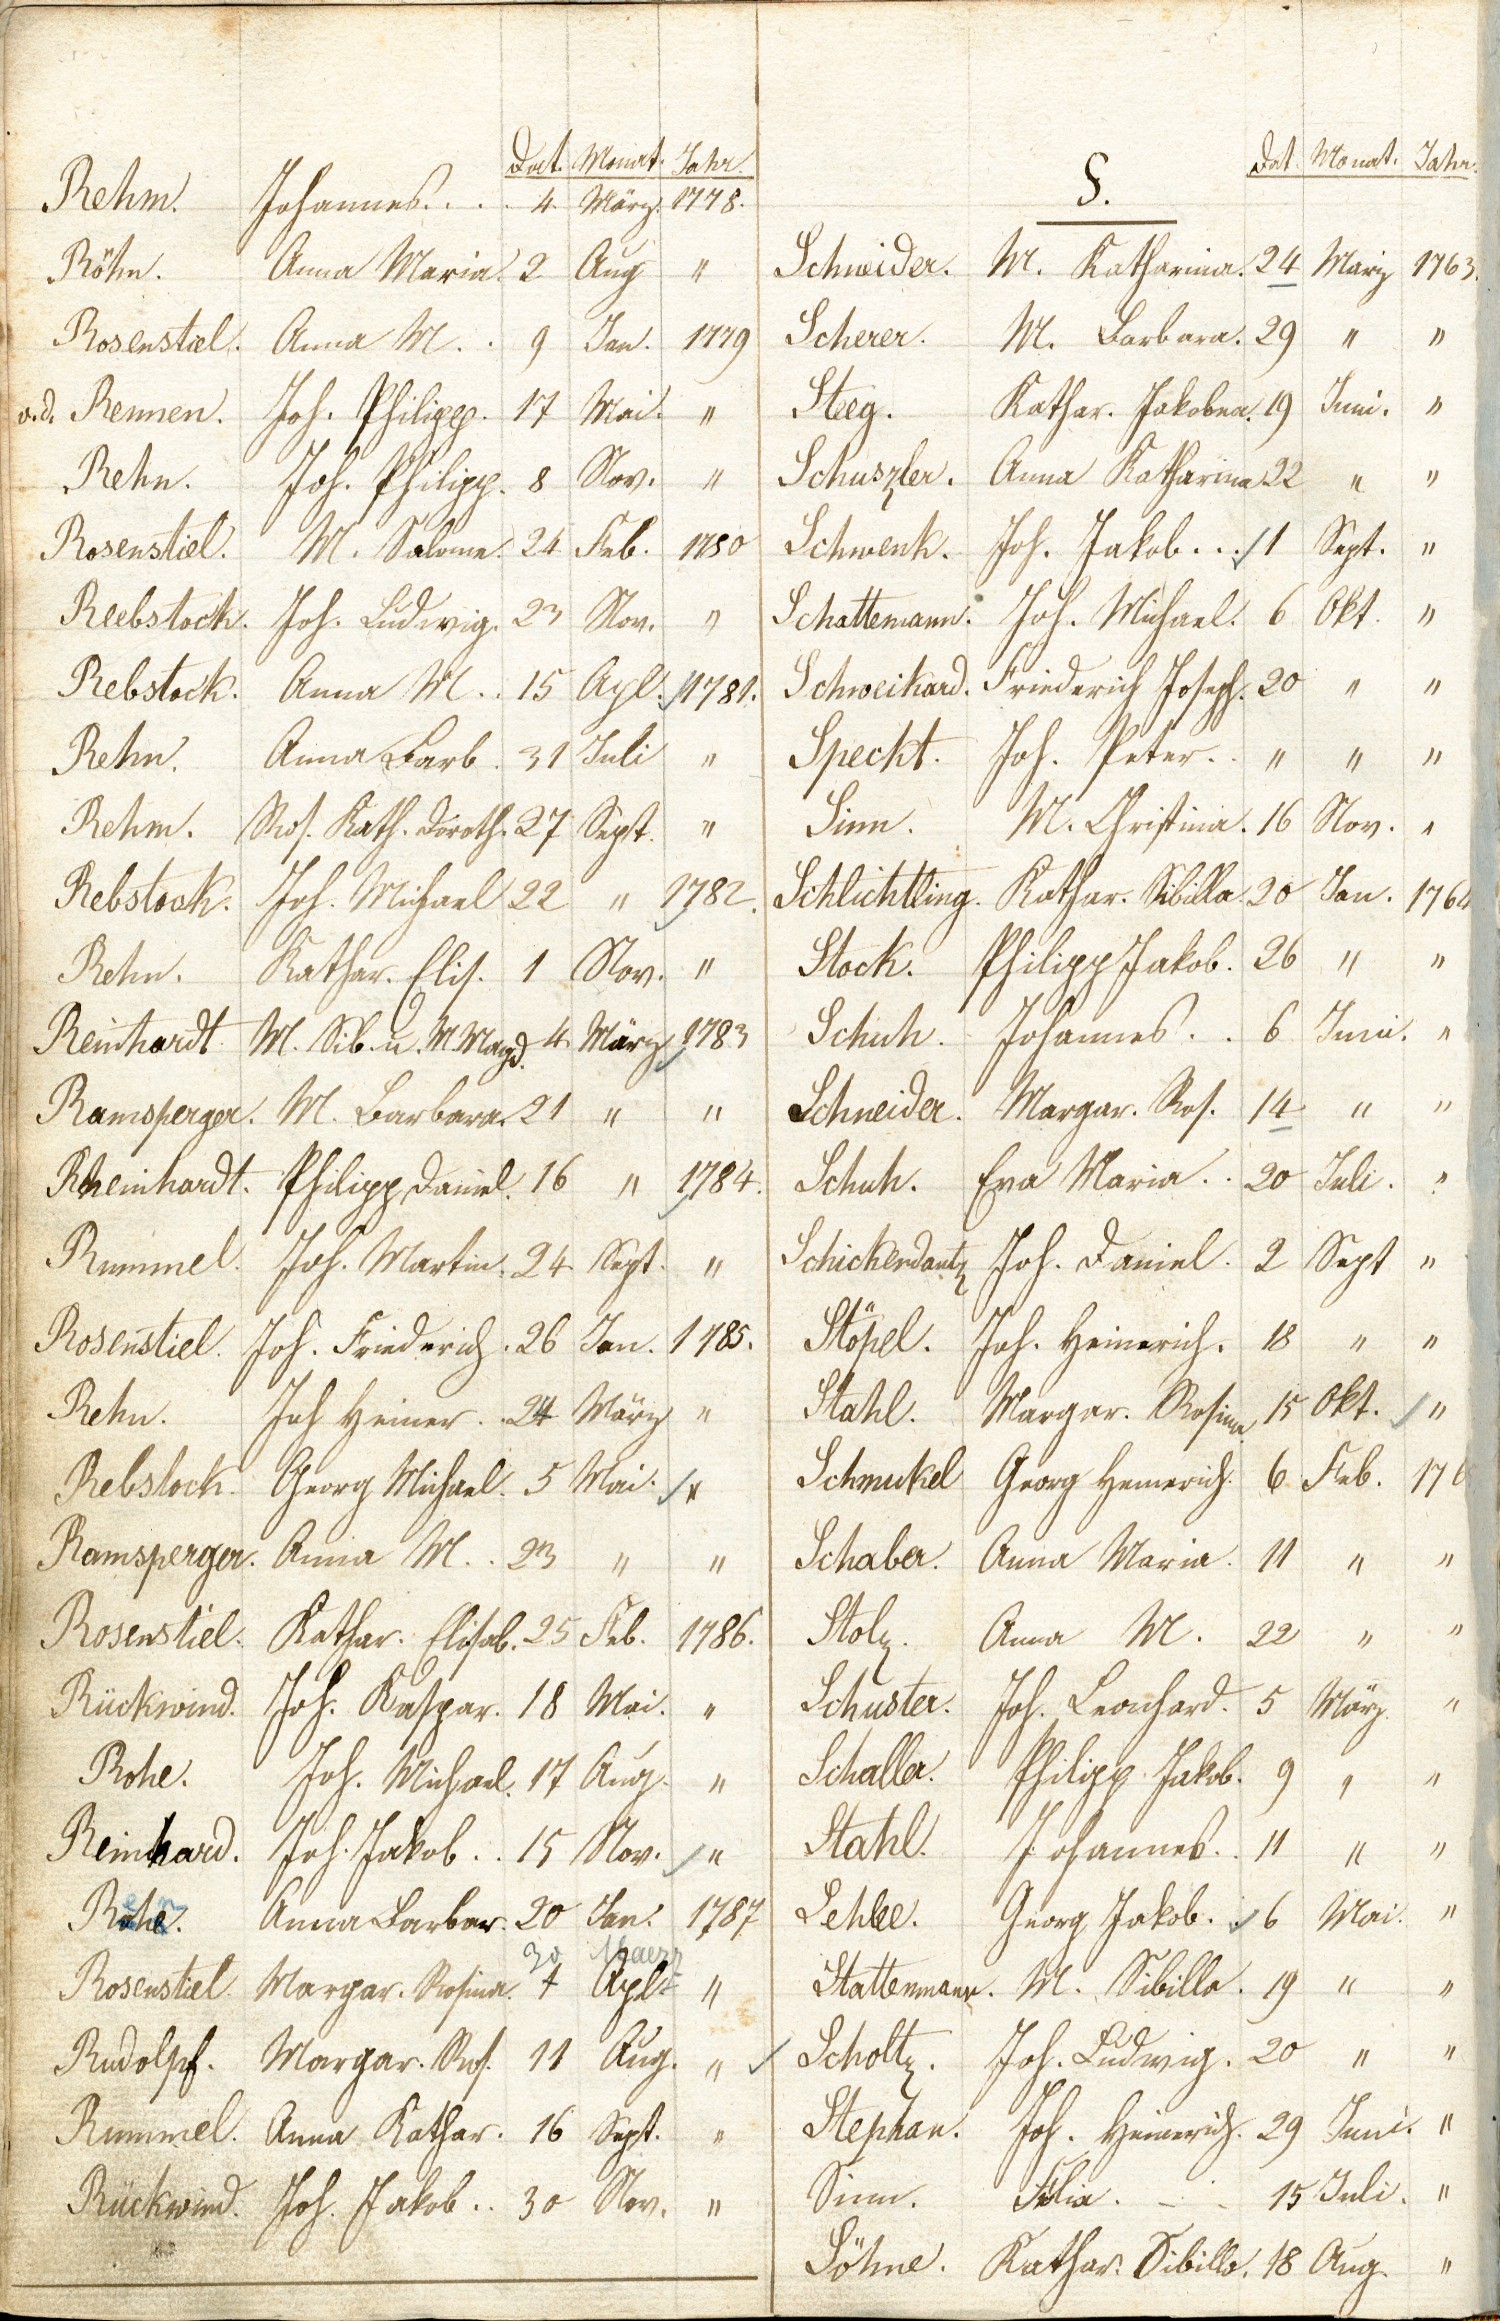 Dat. Monat. Jahr.
Rehm. Johannes. . . . 4. März. 1778.
Röhn. Anna Maria. 2 Aug "
Rosenstiel. Anna M. . . 9 Jan. 1779
v.d. Rennen. Joh. Philipp. 17 Mai. "
Rehn. Joh. Philipp. 8 Nov. "
Rosenstiel. M. Salome. 24 Feb. 1780
Reebstock. Joh. Ludwig. 23 Nov. "
Rebstock. Anna M. . . 15 Apl. 1781.
Rehn. Anna Barb. 31 Juli "
Rehm. Ros. Kath. Doroth. 27 Sept. "
Rebstock. Joh. Michael 22 " 1782.
Rehn. Kathar. Elis. 1 Nov. "
Reinhardt M. Sib. u. M. Magd. 4. März 1783
Ramsperger. M. Barbara. 21 " "
Rheinhardt. Philipp Daniel. 16 " 1784.
Rummel. Joh. Martin. 24 Sept. "
Rosenstiel. Joh. Friederich. 26 Jan. 1785.
Rehn. Joh Heiner. . 24 März "
Rebstock. Georg Michael. 5 Mai. "
Ramsperger. Anna M. . . 23 " "
Rosenstiel. Kathar. Elisab. 25 Feb. 1786.
Rückwind. Joh. Kaspar. 18 Mai. "
Rohe. Joh. Michael. 17 Aug. "
Reinhard. Joh. Jakob. . . 15 Nov. "
Anna Barbar. 20 Jan. 1787
30 Maerz
Rosenstiel. Margar. Rosina. Apl. "
Rudolpf. Margar. Ros. 11 Aug. "
Rummel. Anna Kathar. 16 Sept. "
Rückwind. Joh. Jakob. . . 30 Nov. "
S.
Dat. Monat. Jahr.
Schneider. M. Katharina. 24 März 1763.
Scherer. M. Barbara. 29 " "
Steeg. Kathar. Jakobea. 19 Juni. "
Schuszler. Anna Katharina 22 " "
Schwenk. Joh. Jakob. . . . 1 Sept. "
Schattemann. Joh. Michael. 6 Okt. "
Schweikard. Friederich Joseph. 20 " "
Specht. Joh. Peter. . " " "
Sinn. M. Christina. 16 Nov. "
Schlichtling. Kathar. Sibilla. 20 Jan. 1764
Stock. Philipp Jakob. 26 " "
Schuh. Johannes. . . 6 Juni. "
Schneider. Margar. Ros. 14 " "
Schuh. Eva Maria. . . 20 Juli. "
Schickendantz Joh. Daniel. 2 Sept "
Stöpel. Joh. Heinerich. 18 " "
Stahl. Margar. Rosina. 15 Okt. "
Schmukel Georg Heinerich. 6 Feb. 176
Schaber. Anna Maria. 11 " "
Stolz. Anna M. 22 " "
Schuster. Joh. Leonhard. 5 März. "
Schaller. Philipp Jakob. 9 " "
Stahl. Johannes. . 11 " "
Georg Jakob. . 6 Mai. "
Stattenmann. M. Sibilla. 19 " "
Scholtz. Joh. Ludwig. 20 " "
Stephan. Joh. Heinerich. 29 Juni. "
Sinn. 15 Juli. "
Söhne. Kathar. Sibilla. 18 Aug. "